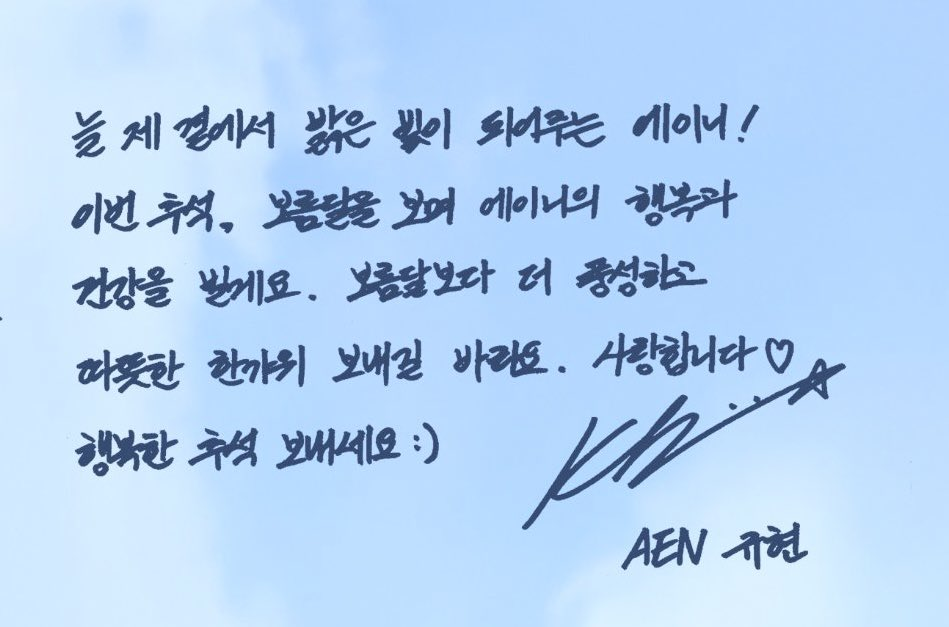 늘 제 곁에서 밝은 빛이 되어주는 에이니!
이번 추석, 보름달을 보며 에이니의 행복과
건강을 빌게요. 보름달보다 더 풍성하고
따뜻한 한가위 보내길 바라요. 사랑합니다♡
행복한 추석 보내세요 :)
AEN 규현